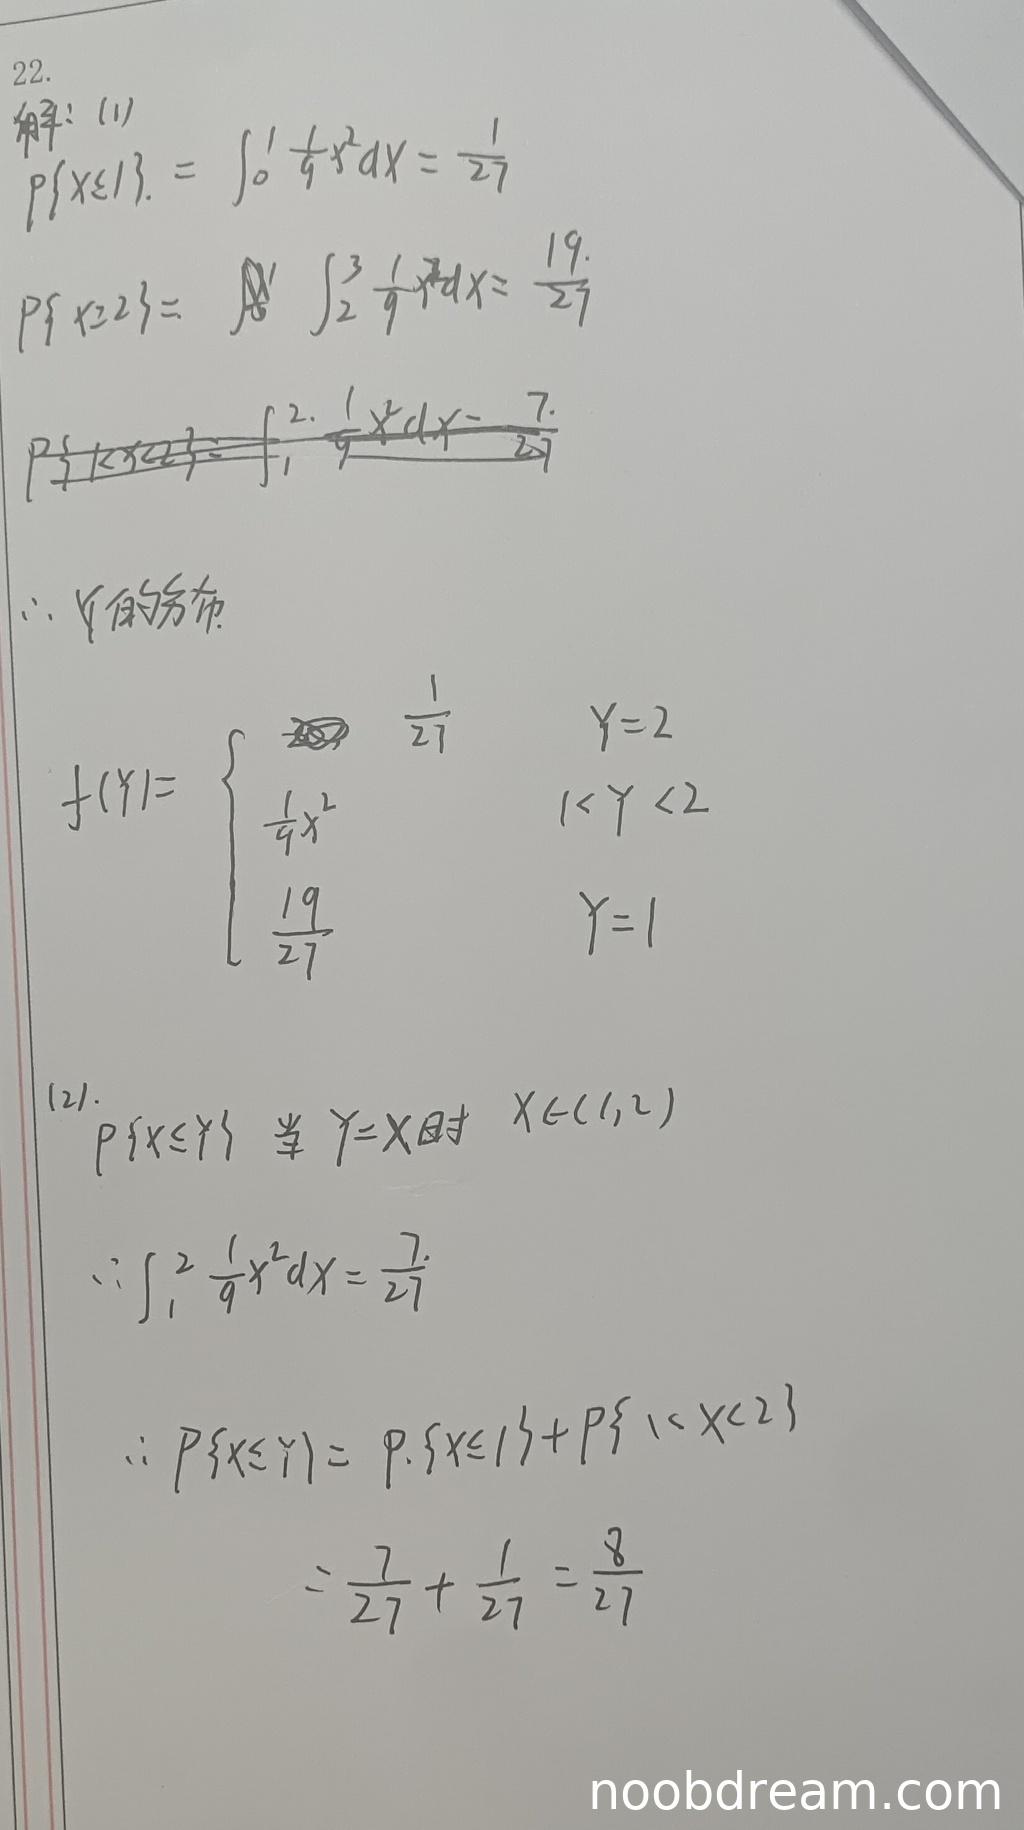 22.
解: (1)
P{X≤1}. = ∫₀¹ 1/9 x² dx = 1/27
P{x≥2} = ∫₂³ 1/9 x² dx = 19/27
P{1<X<2} = ∫₁² 1/9 x² dx = 7/27
∴ Y的分布
f(Y) = { 1/27 Y=2
1/9 x² 1<Y<2
19/27 Y=1
(2).
P{X≤Y} 当 Y=X时 X∈(1,2)
∴ ∫₁² 1/9 x² dx = 7/27
∴ P{X≤Y} = P.{X≤1} + P{1<X<2}
= 7/27 + 1/27 = 8/27
noobdream.com